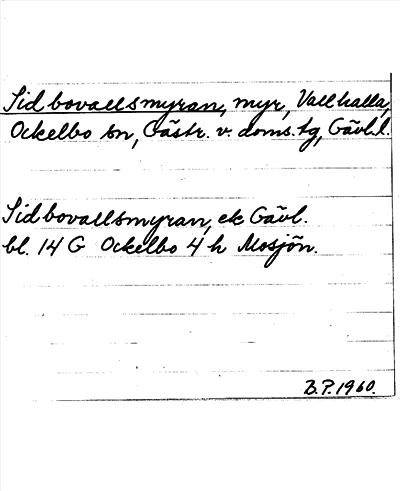 Sidbovallsmyran, myr, Vallhalla,
Ockelbo sn, Gästr. v. doms. tg, Gävl. l.
Sidbovallsmyran, ek Gävl.
bl. 14 G Ockelbo 4 h Mosjön.
B.P. 1960.